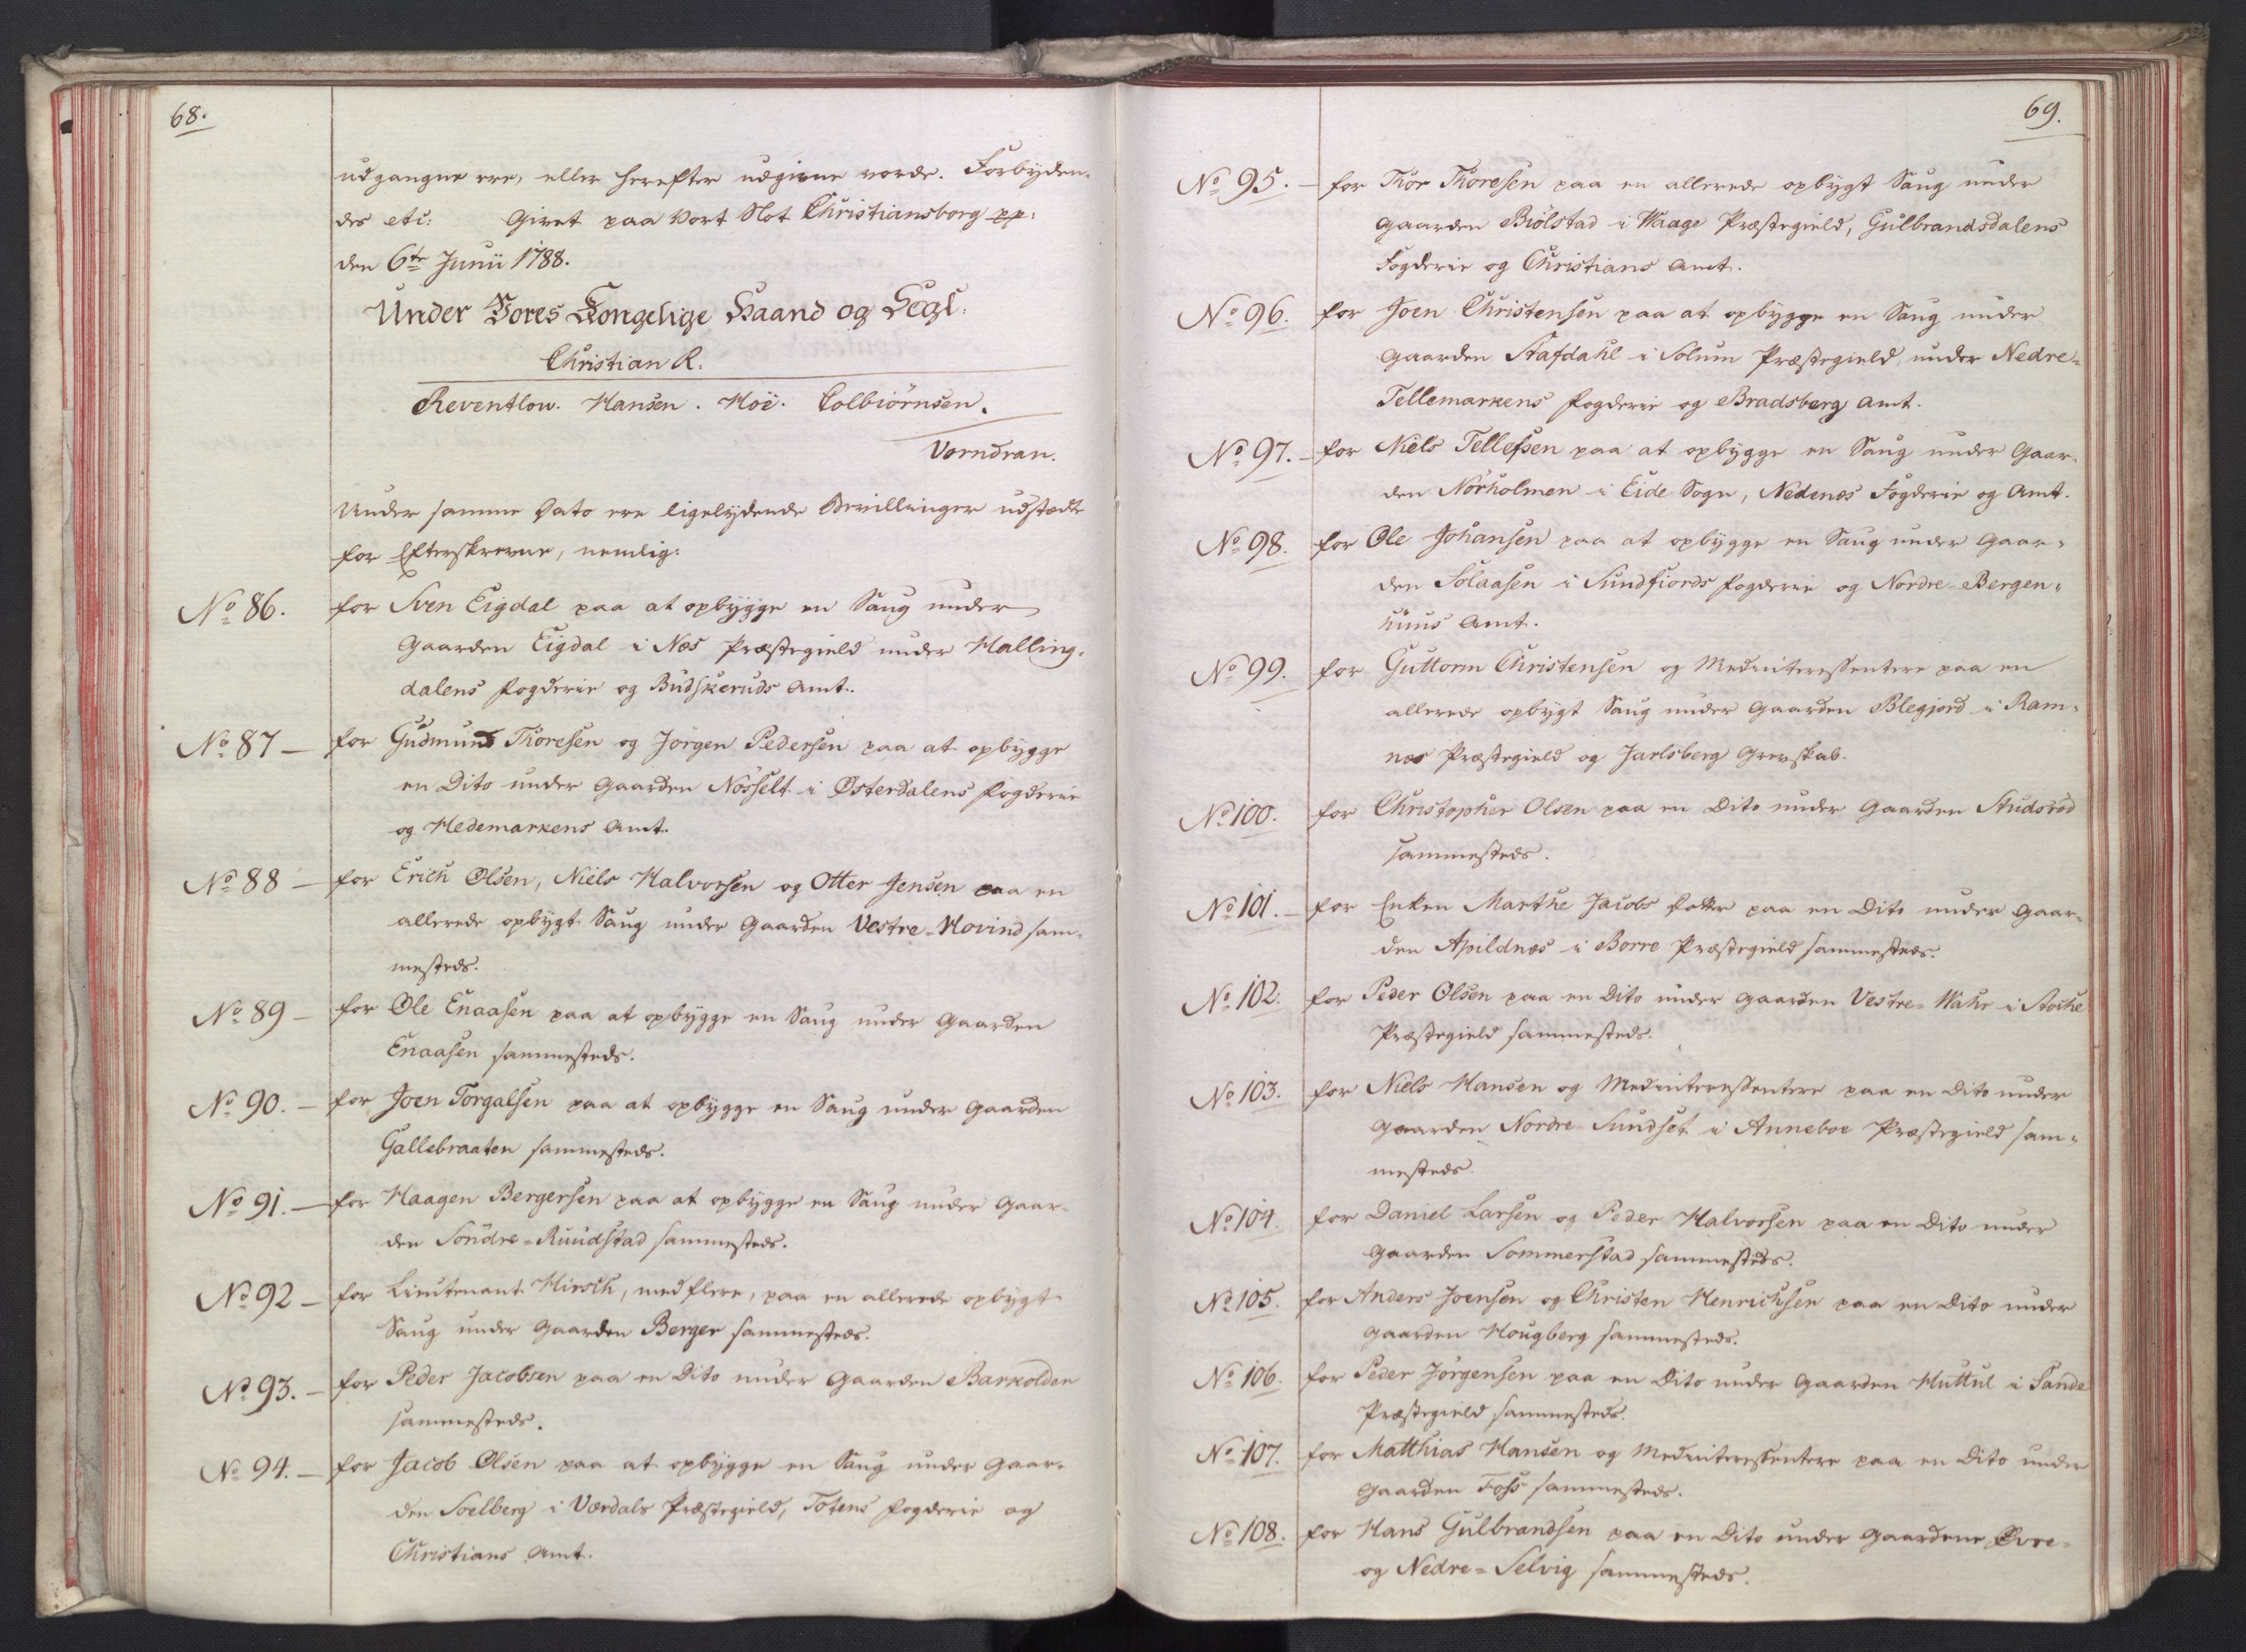 68.
udgangne ere, eller herefter udgivne vorde. Forbyden-
des etc: Givet paa Vort Slot Christiansborg pp:
den 6te Junii 1788.
Under Vores Kongelige Haand og Segl.
Christian R.
Reventlow. Hansen. Hoë. Colbiörnsen.
Vorndran.
Under samme Dato ere ligelydende Bevillinger udstædte
for Efterskrevne, nemlig:
No 86. for Sven Eigdal paa at opbygge en Saug under
Gaarden Eigdal i Næs Præstegield under Halling-
dalens Fogderie og Budskeruds Amt.
No 87 — for Gudmund Thoresen og Jörgen Pedersen paa at opbygge
en Dito under Gaarden Nösselt i Østerdalens Fogderie
og Hedemarkens Amt.
No 88 — for Erich Olsen, Niels Halvorsen og Otter Jensen paa en
allerede opbygt Saug under Gaarden Vestre-Hovind sam-
mesteds.
No 89 — for Ole Enaasen paa at opbygge en Saug under Gaarden
Enaasen sammesteds.
No 90. — for Joen Torgalsen paa at opbygge en Saug under Gaarden
Gallebraaten sammesteds.
No 91. — for Haagen Bergersen paa at opbygge en Saug under Gaar-
den Söndre-Ruudstad sammesteds.
No 92 — for Lieutenant Hirsch, med flere, paa en allerede opbygt
Saug under Gaarden Berger sammesteds.
No 93. — for Peder Jacobsen paa en Dito under Gaarden Barkolden
sammesteds.
No 94. — for Jacob Olsen paa at opbygge en Saug under Gaar-
den Soelberg i Værdals Præstegield, Totens Fogderie og
Christians Amt.
69.
No 95. — for Thor Thoresen paa en allerede opbygt Saug under
Gaarden Biölstad i Waage Præstegield, Gulbrandsdalens
Fogderie og Christians Amt.
No 96. for Joen Christensen paa at opbygge en Saug under
Gaarden Stafdahl i Solum Præstegield, under Nedre-
Tellemarkens Fogderie og Bradsberg Amt.
No 97. — for Niels Tellefsen paa at opbygge en Saug under Gaar-
den Nörholmen i Eide Sogn, Nedenæs Fogderie og Amt.
No 98. for Ole Johansen paa at opbygge en Saug under Gaar-
den Solaasen i Sundfiords Fogderie og Nordre-Bergen-
huus Amt.
No 99. for Guttorm Christensen og Medinteressentere paa en
allerede opbygt Saug under Gaarden Blegjord i Ram-
næs Præstegield og Jarlsberg Grevskab.
No 100. for Christopher Olsen paa en Dito under Gaarden Studsröd
sammesteds.
No 101. — for Enken Marthe Jacobs Datter paa en Dito under Gaar-
den Apildnæs i Borre Præstegield sammesteds.
No 102. for Peder Olsen paa en Dito under Gaarden Vestre-Wahr i Stoche
Præstegield sammesteds.
No 103. for Niels Hansen og Medinteressentere paa en Dito under
Gaarden Nordre-Sundset i Anneboe Præstegield sam-
mesteds.
No 104. for Daniel Larsen og Peder Halvorsen paa en Dito under
Gaarden Sommerstad sammesteds.
No 105. for Anders Joensen og Christen Henrichsen paa en Dito under
Gaarden Hougberg sammesteds.
No 106. for Peder Jörgensen paa en Dito under Gaarden Huttul i Sande
Præstegield sammesteds.
No 107. for Matthias Hansen og Medinteressentere paa en Dito under
Gaarden Foss sammesteds.
No 108. for Hans Gulbrandsen paa en Dito under Gaardene Øvre-
og Nedre-Selvig sammesteds.